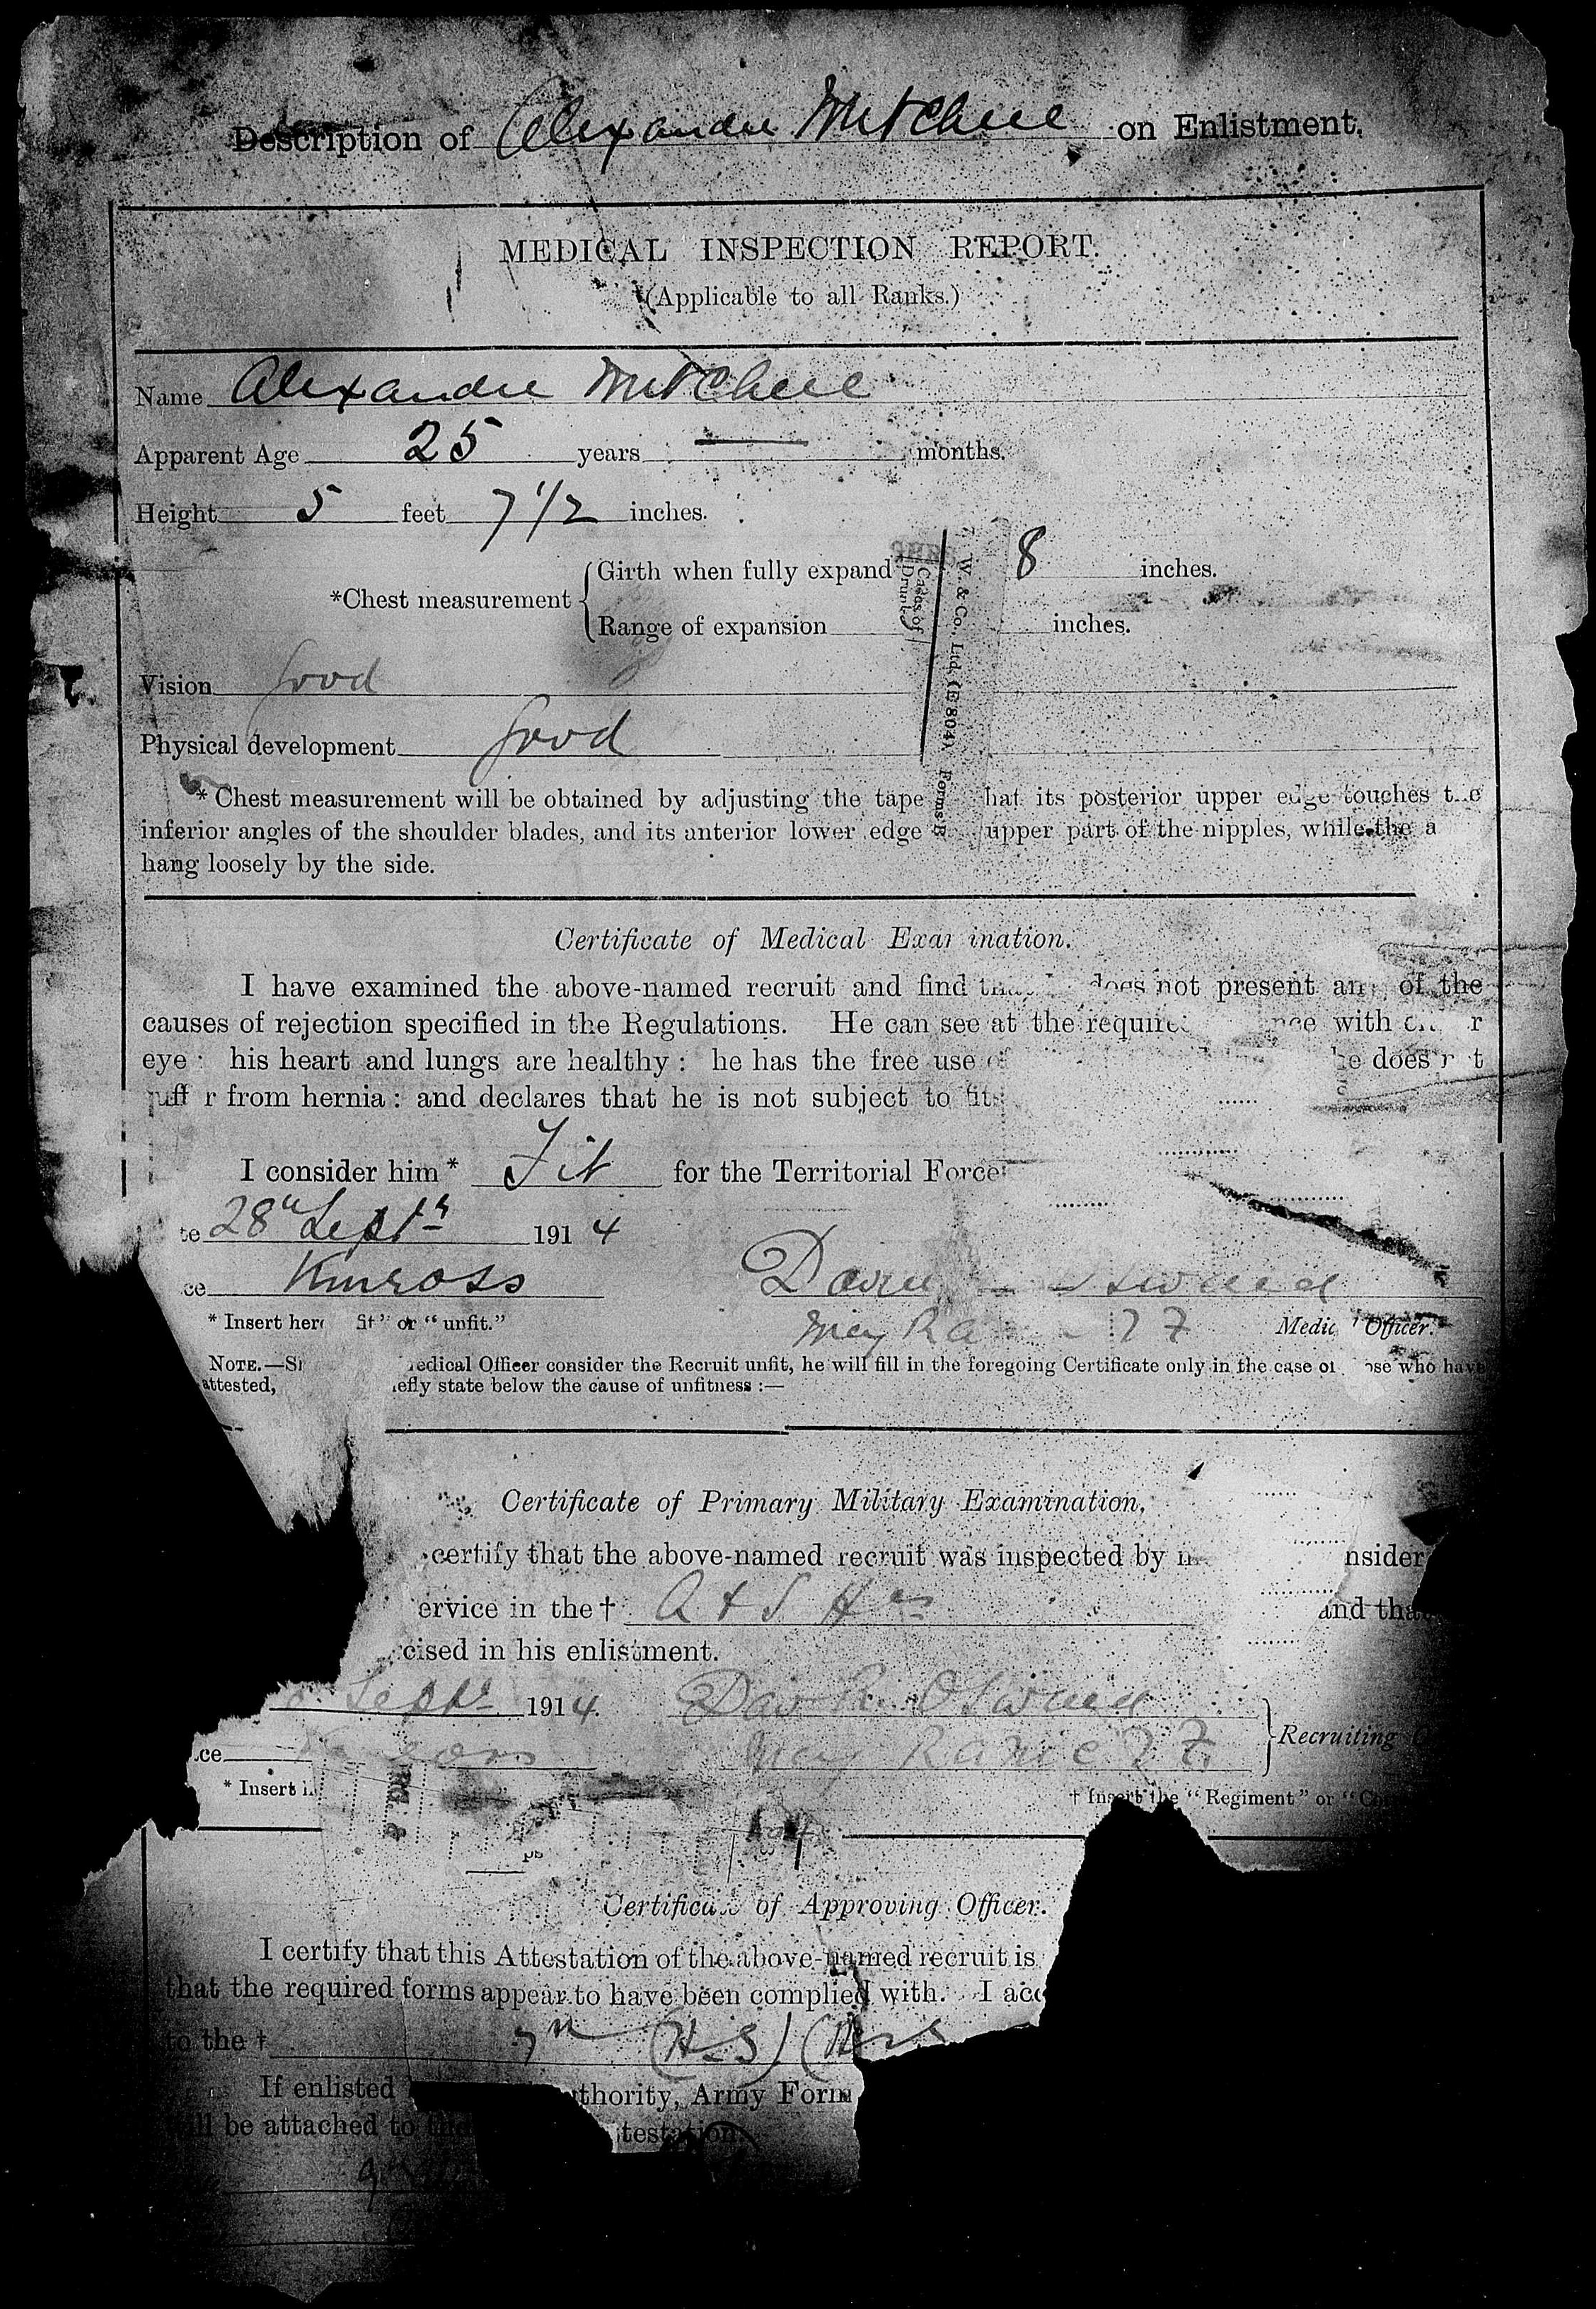 Description of Alexander Mitchell on Enlistment.
MEDICAL INSPECTION REPORT.
(Applicable to all Ranks.)
Name Alexander Mitchell
Apparent Age 25 years — months.
Height 5 feet 7 1/2 inches.
*Chest measurement
Girth when fully expand 8 inches.
Range of expansion inches.
Cases of
Drunk
W. & Co., Ltd. (E 804). Forms B
Vision Good
Physical development Good
* Chest measurement will be obtained by adjusting the tape hat its posterior upper edge touches t e
inferior angles of the shoulder blades, and its anterior lower edge upper part of the nipples, while the a
hang loosely by the side.
Certificate of Medical Exa ination.
I have examined the above-named recruit and find does not present an of the
causes of rejection specified in the Regulations. He can see at the require nce with r
eye : his heart and lungs are healthy : he has the free use of he does n t
uff r from hernia : and declares that he is not subject to fits
I consider him* Fit for the Territorial Force
te 28th Septr 1914
ce Kinross
* Insert here fit" or "unfit."
Medic l Officer.
NOTE.—S edical Officer consider the Recruit unfit, he will fill in the foregoing Certificate only in the case of ose who have
attested, efly state below the cause of unfitness :—
Certificate of Primary Military Examination.
certify that the above-named recruit was inspected by nsider
ervice in the † A & S Hrs and tha
cised in his enlistment.
Septr 1914. Dav R. Oswald
ce Recruiting O
* Insert † Insert the "Regiment" or "Co
Certificate of Approving Officer.
I certify that this Attestation of the above-named recruit is
that the required forms appear to have been complied with. I acc
to the † 7th (H S)
If enlisted uthority, Army Form
ll be attached to the testation.